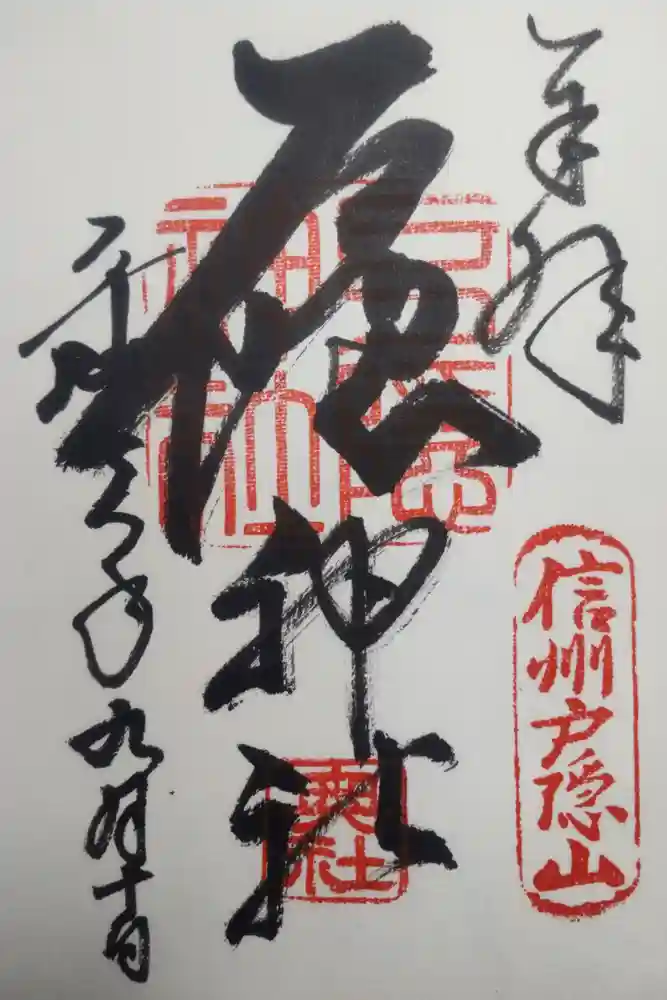 奉拝
信州戸隠山
戸隠神社
戸隠
神社
奥社
平成年九月十日